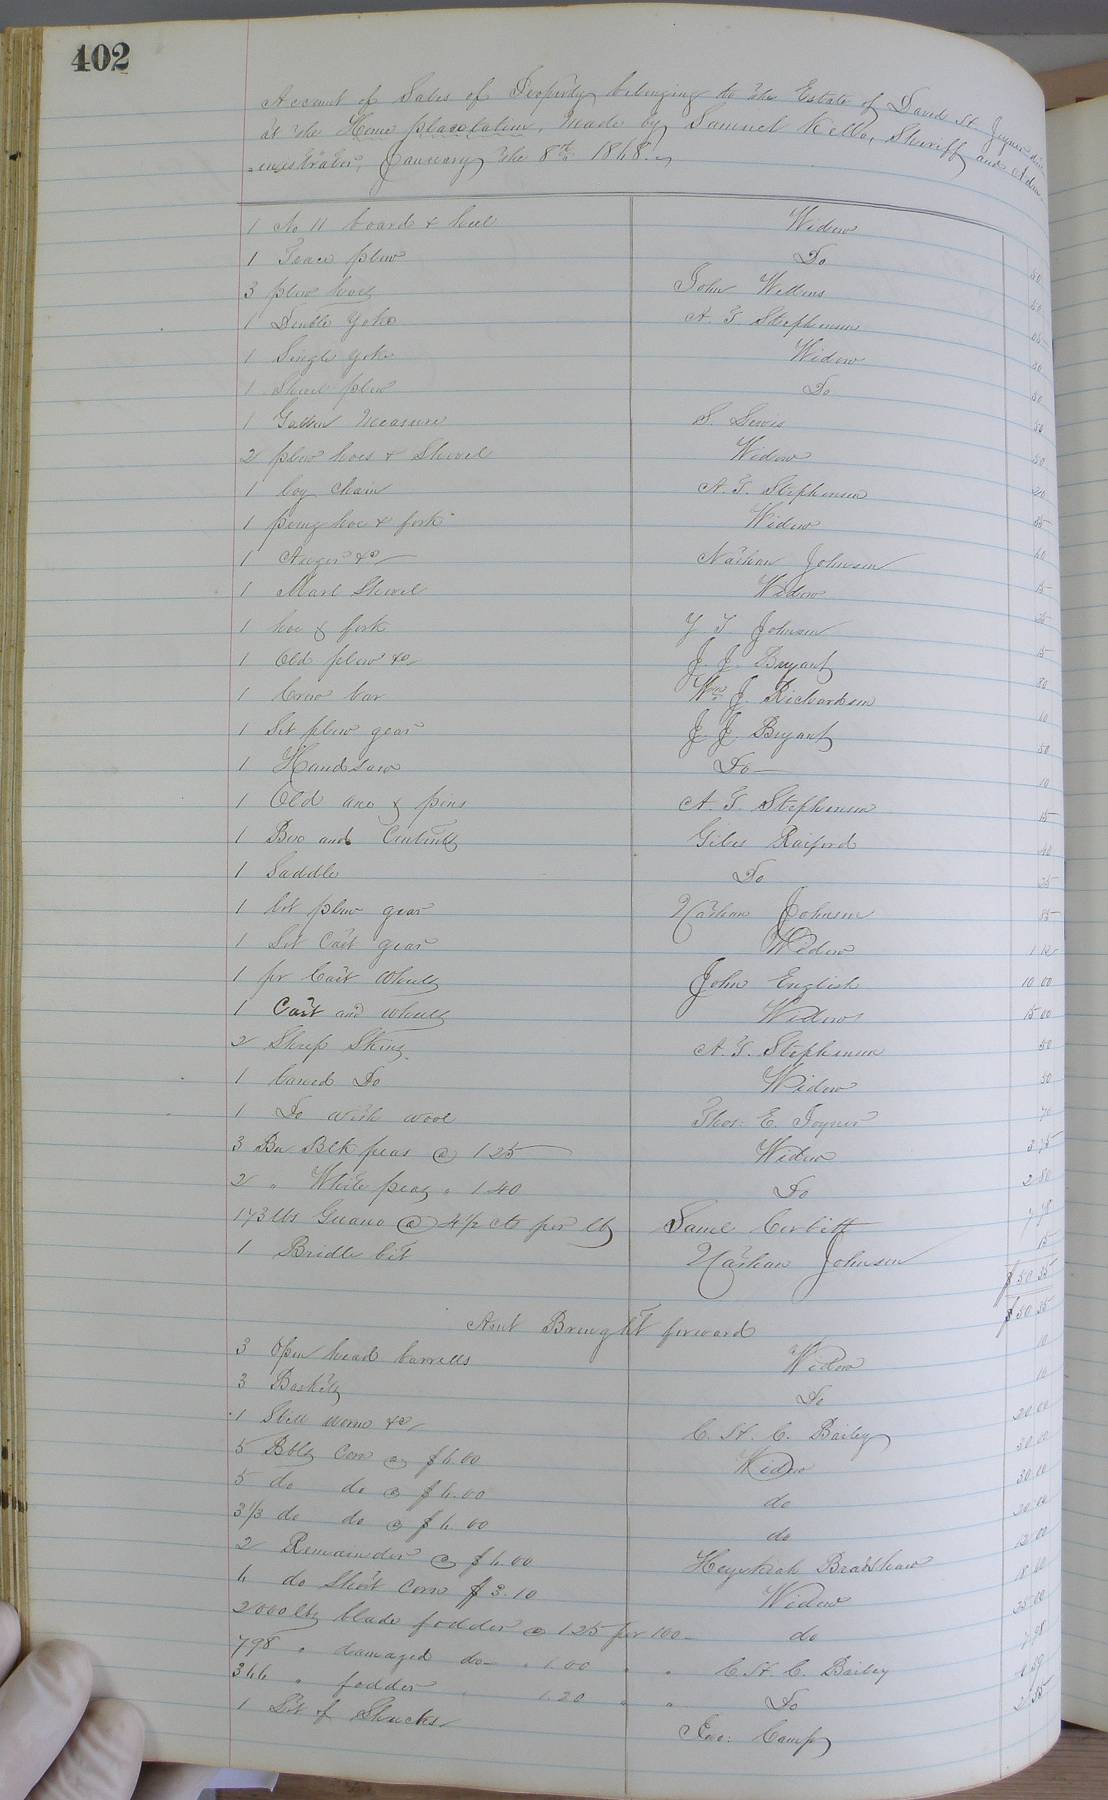 402
Account of Sales of Property belonging to the Estate of David H. Joyner
at the Home plantation, Made by Samuel Kello, Sheriff and Adm-
-inistrator, January the 8th 1868.
1 No 11 board & heel Widow 50
1 Trace plow Do 50
3 plow hoes John Wellons 05
1 Double yoke A. T Stephenson 50
1 Single yoke Widow 50
1 Shovel plow Do 50
1 Gallon Measure S. Lewis 50
2 plow hoes & Shovel Widow 20
1 log chain A. T. Stephenson 35
1 hoe & fork Widow 60
1 Auger &c Nathan Johnson 15
1 Marl Shovel Widow 25
1 hoe & fork Y T Johnson 15
1 Old plow &c J. J. Bryant 80
1 Crow bar Wm J. Richardson 10
1 Set plow gear J. J. Bryant 50
1 Handsaw Do 10
1 Old axe & pins A. T Stephenson 15
1 Box and Contents Giles Raiford 40
1 Saddle Do 25
1 lot plow gear Nathan Johnson 35
1 Set Cart gear Widow 1
1 pr Cart Wheels John English 10 00
1 Cart and wheels Widow 15 00
2 Sheep Skins A. T. Stephenson 50
1 Do Widow 50
1 Do with wool Thos. E. Joyner 70
3 Bu Blk peas @ 1 25 Widow 3 75
2 " White peas " 1 40 Do 2 80
173 lbs Guano @ 4 1/2 cts per lb Saml Corbitt 7 78
1 Bridle bit Nathan Johnson 15
$50 35
Amt Brought forward $50 35
3 Open head barrells Widow 10
3 Baskets Do 10
1 Still worm &c C. H. C. Bailey 20 00
5 Bbls Corn @ $6.00 Widow 30 00
5 do do @ $6.00 do 30 00
3 1/3 do do @ $6.00 do 20 00
2 Remainder @ $6.00 Heyekiah Bradshaw 12 00
6 do Short Corn $3.10 Widow 18 60
2000 lbs blade fodder @ 1.25 per 100 do 25 00
798 " damaged do " 1.00 " " C. H. C. Bailey 7 98
366 " fodder 1.20 " " Do 4 39
1 Lot of Shucks Geo: Camp 2 55